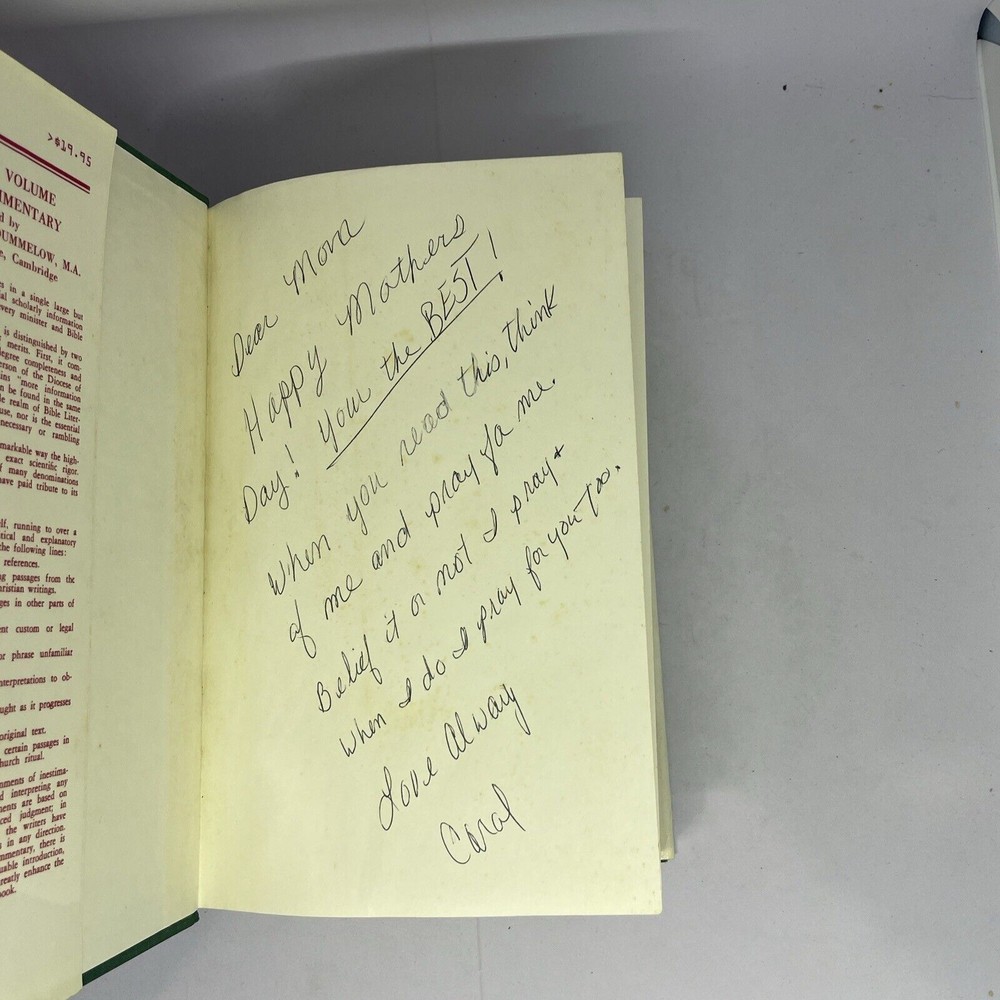 >$19.95
VOLUME
MMENTARY
d by
DUMMELOW, M.A.
e, Cambridge
es in a single large but
al scholarly information
very minister and Bible
is distinguished by two
merits. First, it com-
degree completeness and
erson of the Diocese of
ins "more information
n be found in the same
le realm of Bible Liter-
use, nor is the essential
necessary or rambling
markable way the high-
exact scientific rigor.
f many denominations
have paid tribute to its
lf, running to over a
tical and explanatory
the following lines:
references.
ng passages from the
hristian writings.
ges in other parts of
ent custom or legal
or phrase unfamiliar
nterpretations to ob-
ught as it progresses
original text.
certain passages in
hurch ritual.
nments of inestima-
d interpreting any
ments are based on
ced judgment; in
the writers have
s in any direction.
mmentary, there is
uable introduction,
reatly enhance the
ook.
Dear Mom
Happy Mothers
Day! Your the BEST!
When you read this, think
of me and pray for me.
Belief it or not I pray +
when I do I pray for you too.
Love Always
Carol